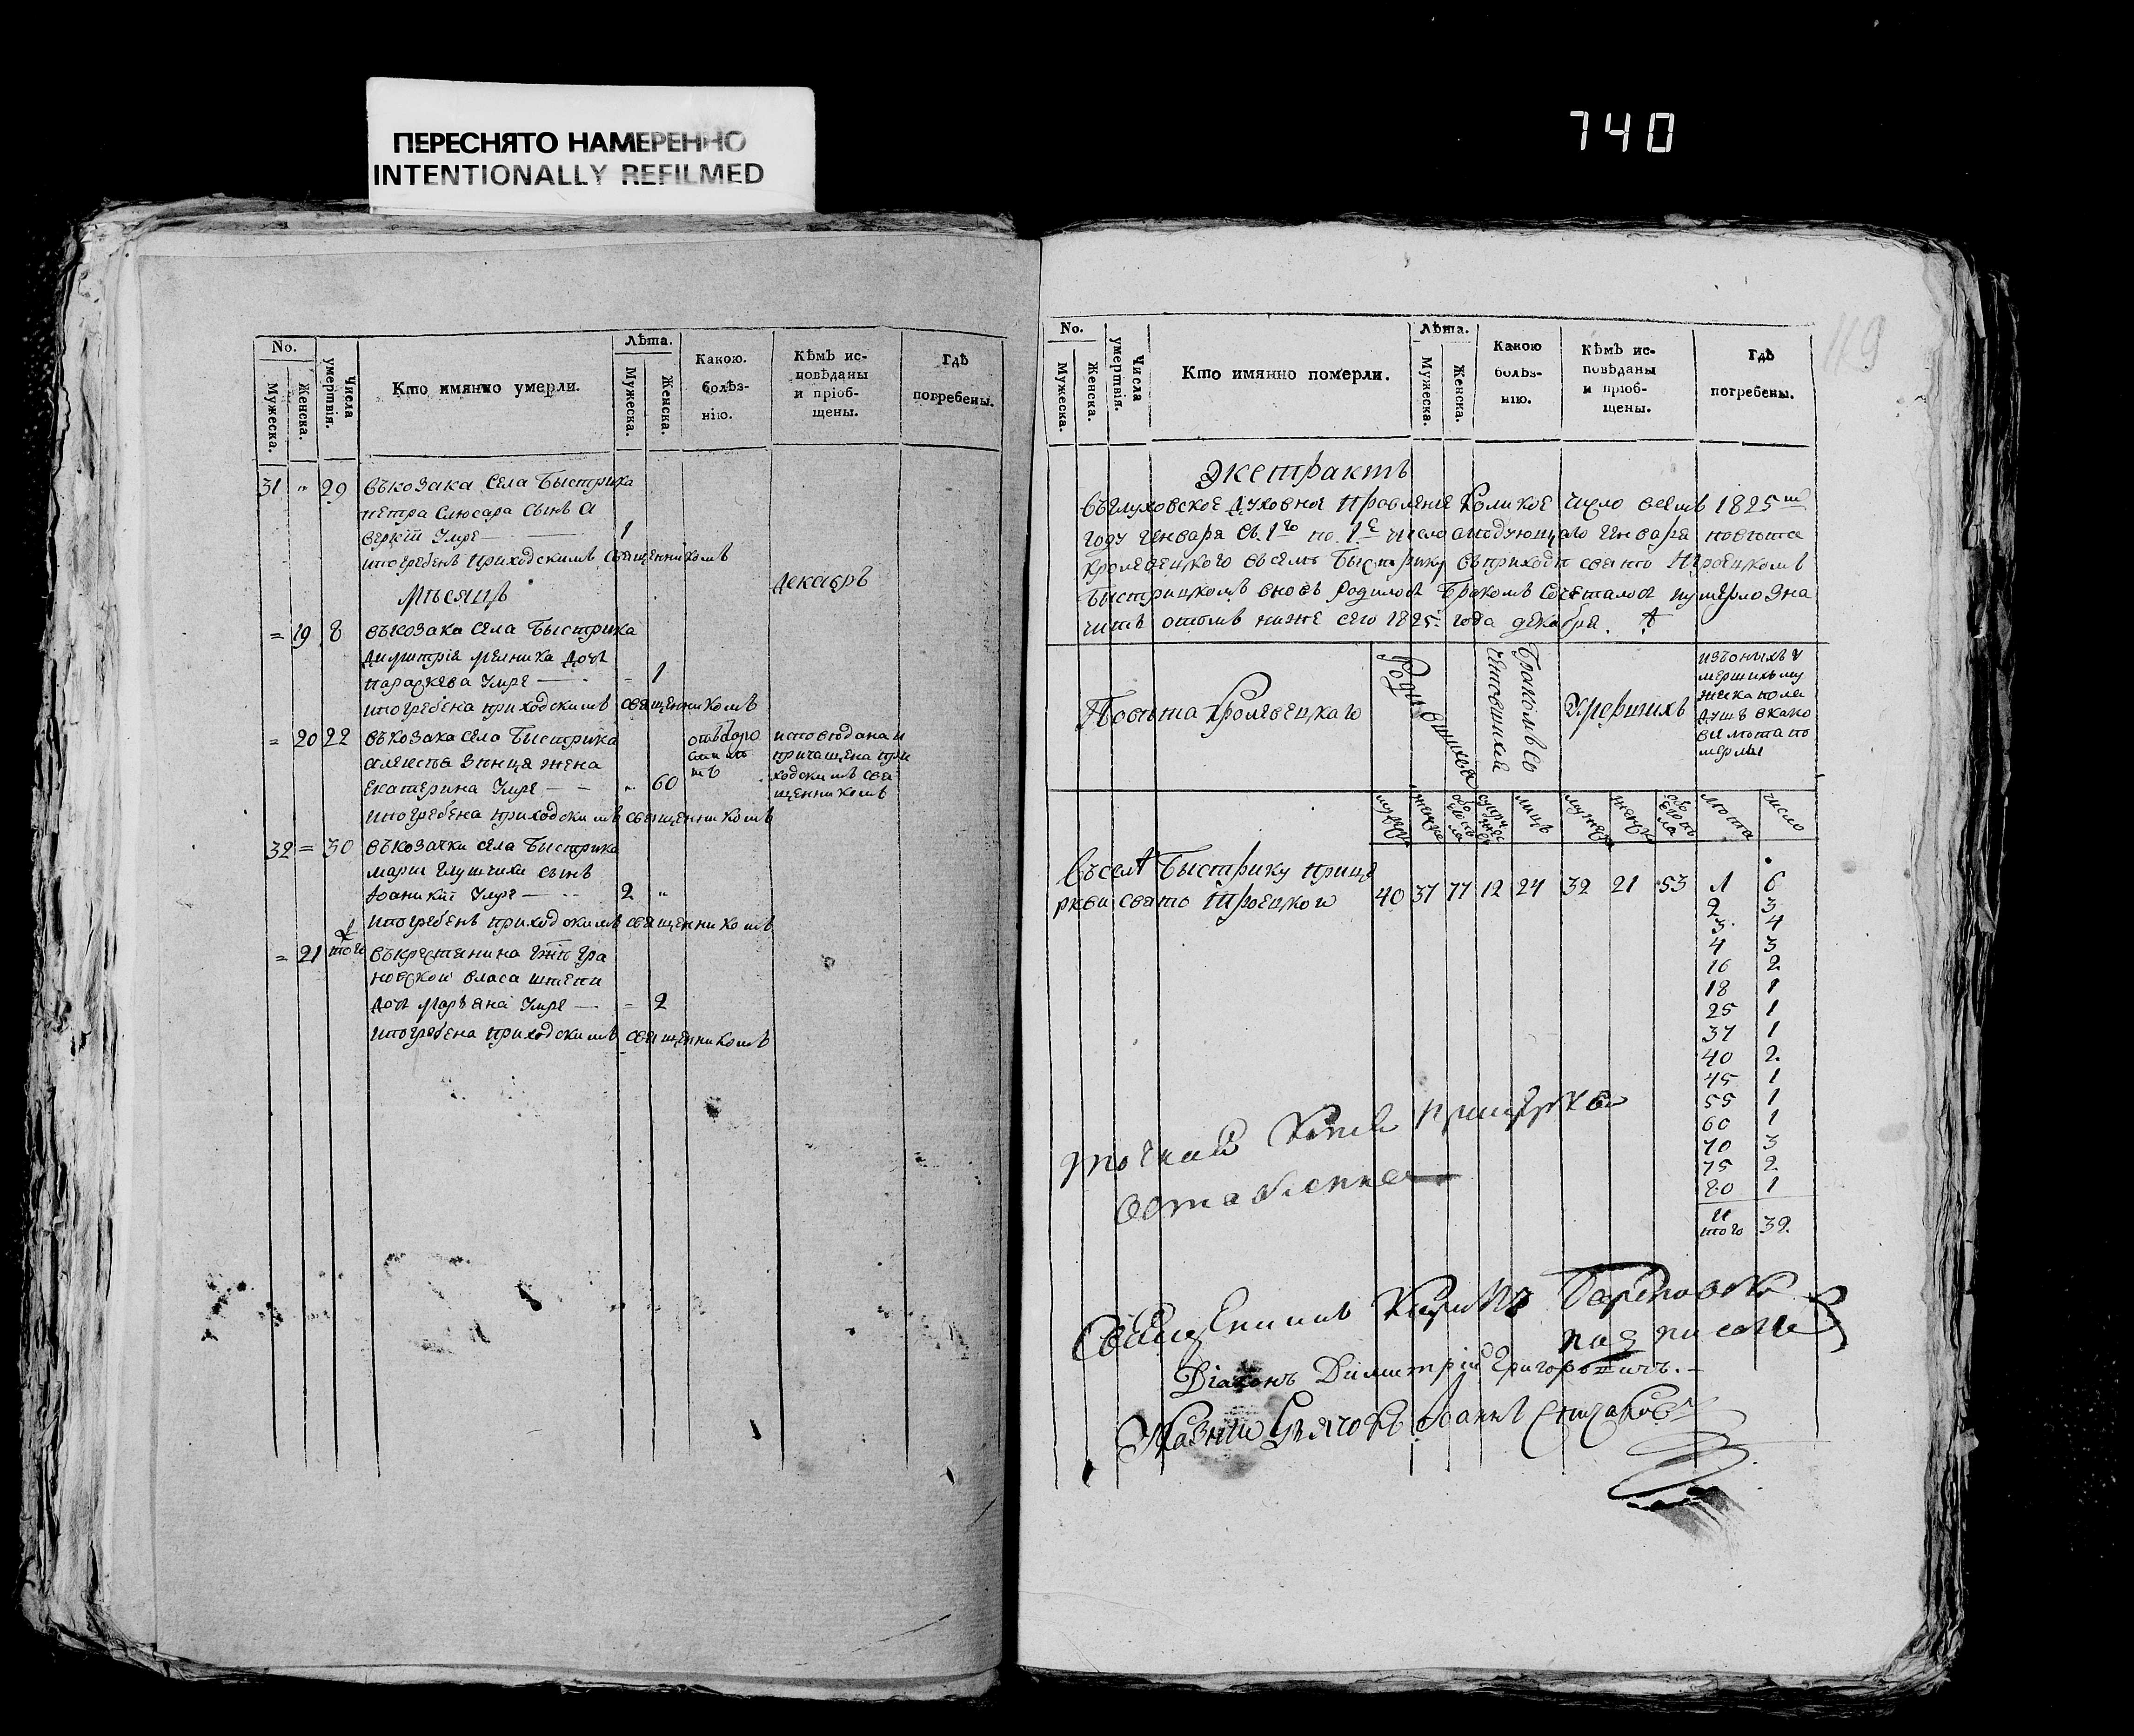 ПЕРЕСНЯТО НАМЕРЕННО
INTENTIONALLY REFILMED
740
No.
Мужеска.
Женска.
Числа умертвія.
Кто имянно умерли.
Лѣта.
Мужеска.
Женска.
Какою.
болѣз-
нію.
Кѣмъ ис-
повѣданы
и пріоб-
щены.
Гдѣ
погребены.
31 " 29 въ козака села Быстрика
петра Слюсара сынъ а
веркій Умре — 1
и погребенъ приходскимъ священникомъ
Мѣсяцъ декабръ
= 19 8 въ козака села Быстрика
димитрія мелника дочь
параскева Умре — - 1
и погребена приходскимъ священникомъ
= 20 22 въ козака села Быстрика
алексѣа жена
Екатерина Умре — - 60
исповѣдана и
причащена при
ходскимъ свя
щенникомъ
и погребена приходскимъ священникомъ
32 = 30 въ козачки села Быстрика
марии Глущихи сынъ
Іоаникій Умре — 2 "
и погребенъ приходскимъ священникомъ
= 21 того въ крестянина гжи Гра
новской власа
дочь маръяна Умре — = 2
и погребена приходскимъ священникомъ
119
No.
Мужеска.
Женска.
Числа умертвія.
Кто имянно померли.
Лѣта.
Мужеска.
Женска.
Какою
болѣз-
нію.
Кѣмъ ис-
повѣданы
и пріоб-
щены.
Гдѣ
погребены.
Экстрактъ
въ глуховское духовное правление коликое число всемъ 1825мъ
году генваря съ 1го по 1е число слѣдующаго генваря повѣта
кролевецкого въ селѣ Быстрику въ приходѣ свято Троецкомъ
Быстрицкомъ вновь родилося Бракомъ сочеталося и умерло зна
читъ о томъ ниже сего 1825. года декабря.
Повѣта Кролевецкаго
Родившихся
Бракомъ со
четовшихся
Умершихъ
изъ оныхъ у
мершихъ му
жеска пола
душъ в како
вы лѣта по
мерлы
мужеска
женска
обоего по
ла
супру
жес
лицъ
мужеска
женска
обоего по
ла
лѣта
число
въ селѣ Быстрику при це
ркви свято Троецкой 40 37 77 12 24 32 21 53
1 6
2 3
3 4
4 3
16 2
18 1
25 1
37 1
40 2
45 1
55 1
60 1
70 3
75 2
80 1
И
того 32
точная копия при церкви
оставленна
Священникъ
подписалъ
Діаконъ Димитрій Григоровичъ.
Указній дячокъ Іоаннъ